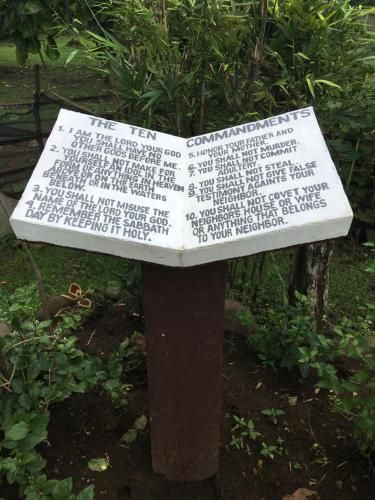 THE TEN
1. I AM THE LORD YOUR GOD
YOU SHALL HAVE NO
OTHER GODS BEFORE ME.
2. YOU SHALL NOT MAKE FOR
YOURSELF AN IDOL IN
FORM OF ANYTHING IN HEAVEN
ABOVE OR ON THE EARTH
BENEATH OR IN THE WATERS
BELOW.
3. YOU SHALL NOT MISUSE THE
NAME OF THE LORD YOUR GOD
4. REMEMBER THE SABBATH
DAY BY KEEPING IT HOLY.
COMMANDMENTS
5. HONOR YOUR FATHER AND
YOUR MOTHER.
6. YOU SHALL NOT MURDER.
7. YOU SHALL NOT COMMIT
ADULTERY.
8. YOU SHALL NOT STEAL.
9. YOU SHALL NOT GIVE FALSE
TESTIMONY AGAINTS YOUR
NEIGHBOR.
10. YOU SHALL NOT COVET YOUR
NEIGHBORS HOUSE OR WIFE
OR ANYTHING THAT BELONGS
TO YOUR NEIGHBOR.